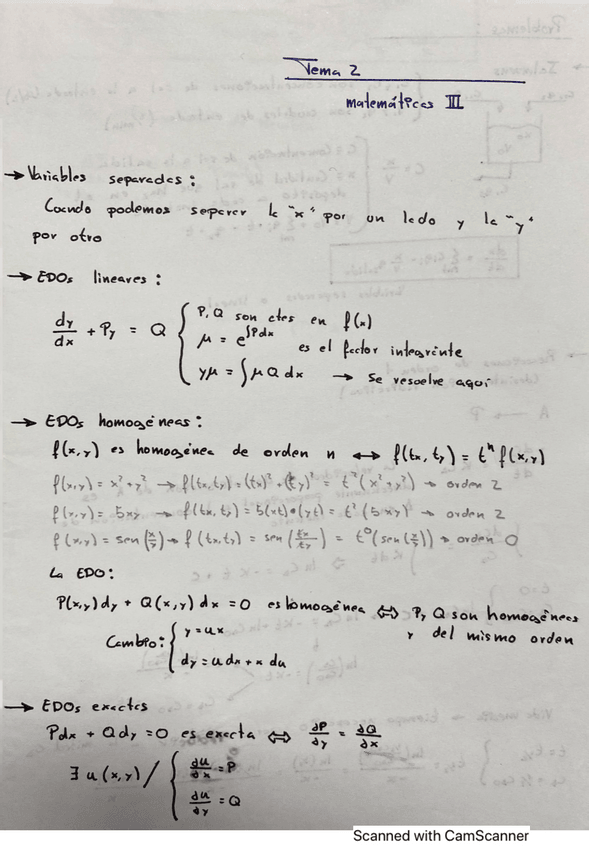 Tema 2
matemáticas III
→ Variables separadas:
Cuando podemos separar la "x" por un lado y la "y"
por otro
→ EDOs lineares:
dy/dx + Py = Q { P, Q son ctes en f(x)
μ = e^∫Pdx es el factor integrante
yμ = ∫ μ Q dx → Se resuelve aquí
→ EDOs homogéneas:
f(x,y) es homogénea de orden n ↔ f(tx, ty) = tⁿ f(x,y)
f(x,y) = x² + y² → f(tx,ty) = (tx)² + (ty)² = t² (x² + y²) → orden 2
f(x,y) = 5xy → f(tx, ty) = 5(xt)•(yt) = t² (5xy) → orden 2
f(x,y) = sen(x/y) → f(tx,ty) = sen(tx/ty) = t⁰ (sen(x/y)) → orden 0
La EDO:
P(x,y) dy + Q(x,y) dx = 0 es homogénea ⇔ P, Q son homogéneas
y del mismo orden
Cambio: { y = ux
dy = u dx + x du
→ EDOs exactas
Pdx + Qdy = 0 es exacta ⇔ ∂P/∂y = ∂Q/∂x
∃ u(x,y) / { ∂u/∂x = P
∂u/∂y = Q
Scanned with CamScanner